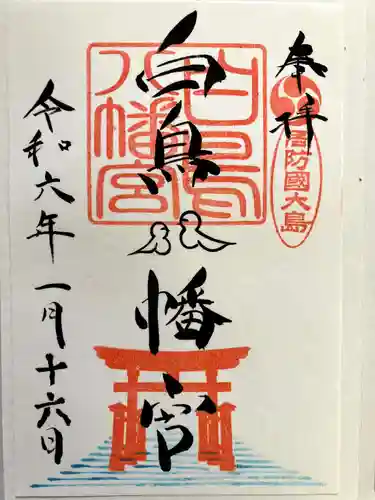 奉拝
周防國大島
白鳥八幡宮
白鳥八幡宮
令和六年一月十六日